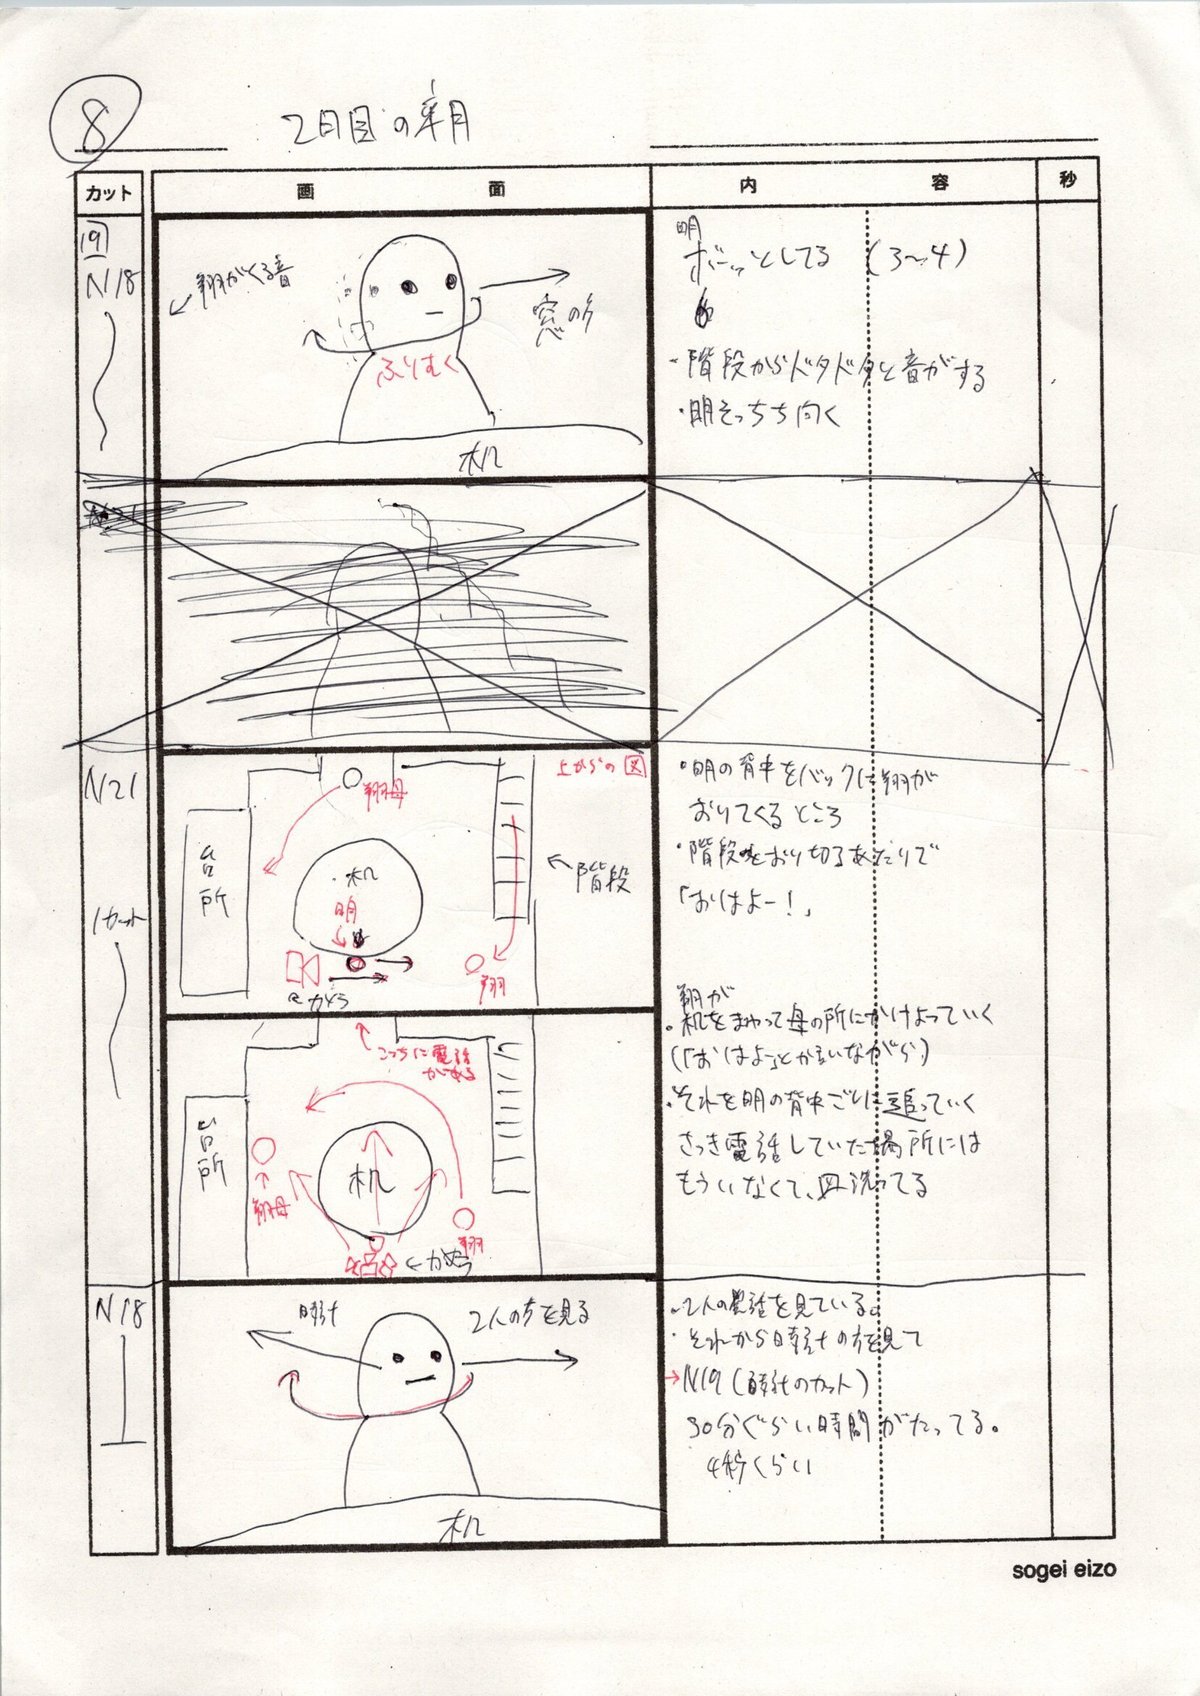 8
2日目の朝
カット
画 面
内 容
秒
19
N18
翔がくる音
窓の方
ふりむく
机
明
ボーッとしてる (3〜4)
・階段からドタドタと音がする
・明そっち向く
N21
1カット
上からの図
翔母
台所
机
明
階段
翔
カメラ
・明の背中をバックに翔が
おりてくるところ
・階段をおり切るあたりで
「おはよー!」
こっちに電話
がある
台所
机
翔母
翔
カメラ
翔が
・机をまわって母の所にかけよっていく
(「おはよう」とか言いながら)
・それを明の背中ごしに追っていく
さっき電話していた場所には
もういなくて、皿洗ってる
N18
時計
2人の方を見る
机
・2人の会話を見ている。
・それから時計の方を見て
→N19(時計のカット)
30分ぐらい時間がたってる。
4秒くらい
sogei eizo